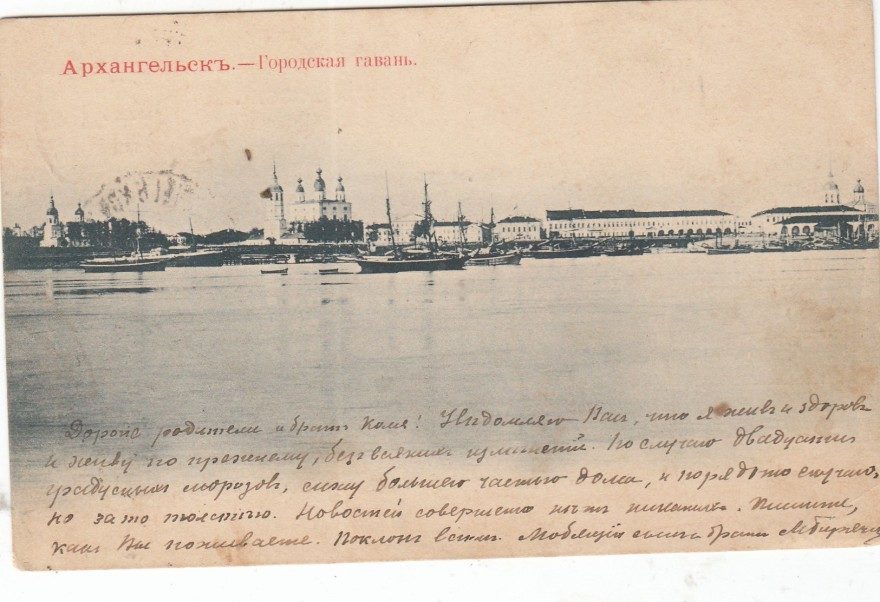 Архангельскъ.—Городская гавань.
Дорогіе родители и братъ Коля! Увѣдомляю Васъ, что я живъ и здоровъ
и живу по прежнему, безъ всякихъ измѣненій. По случаю двадцати
градусныхъ морозовъ, сижу большею частью дома, и порядкомъ скучаю,
но за то толстѣю. Новостей совершенно нѣтъ никакихъ. Пишите,
какъ Вы поживаете. Поклонъ всѣмъ. Любящій сынъ и братъ